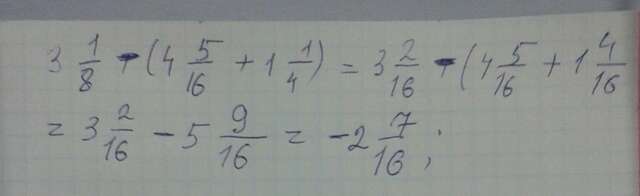 3 1/8 - (4 5/16 + 1 1/4) = 3 2/16 - (4 5/16 + 1 4/16
= 3 2/16 - 5 9/16 = -2 7/16;